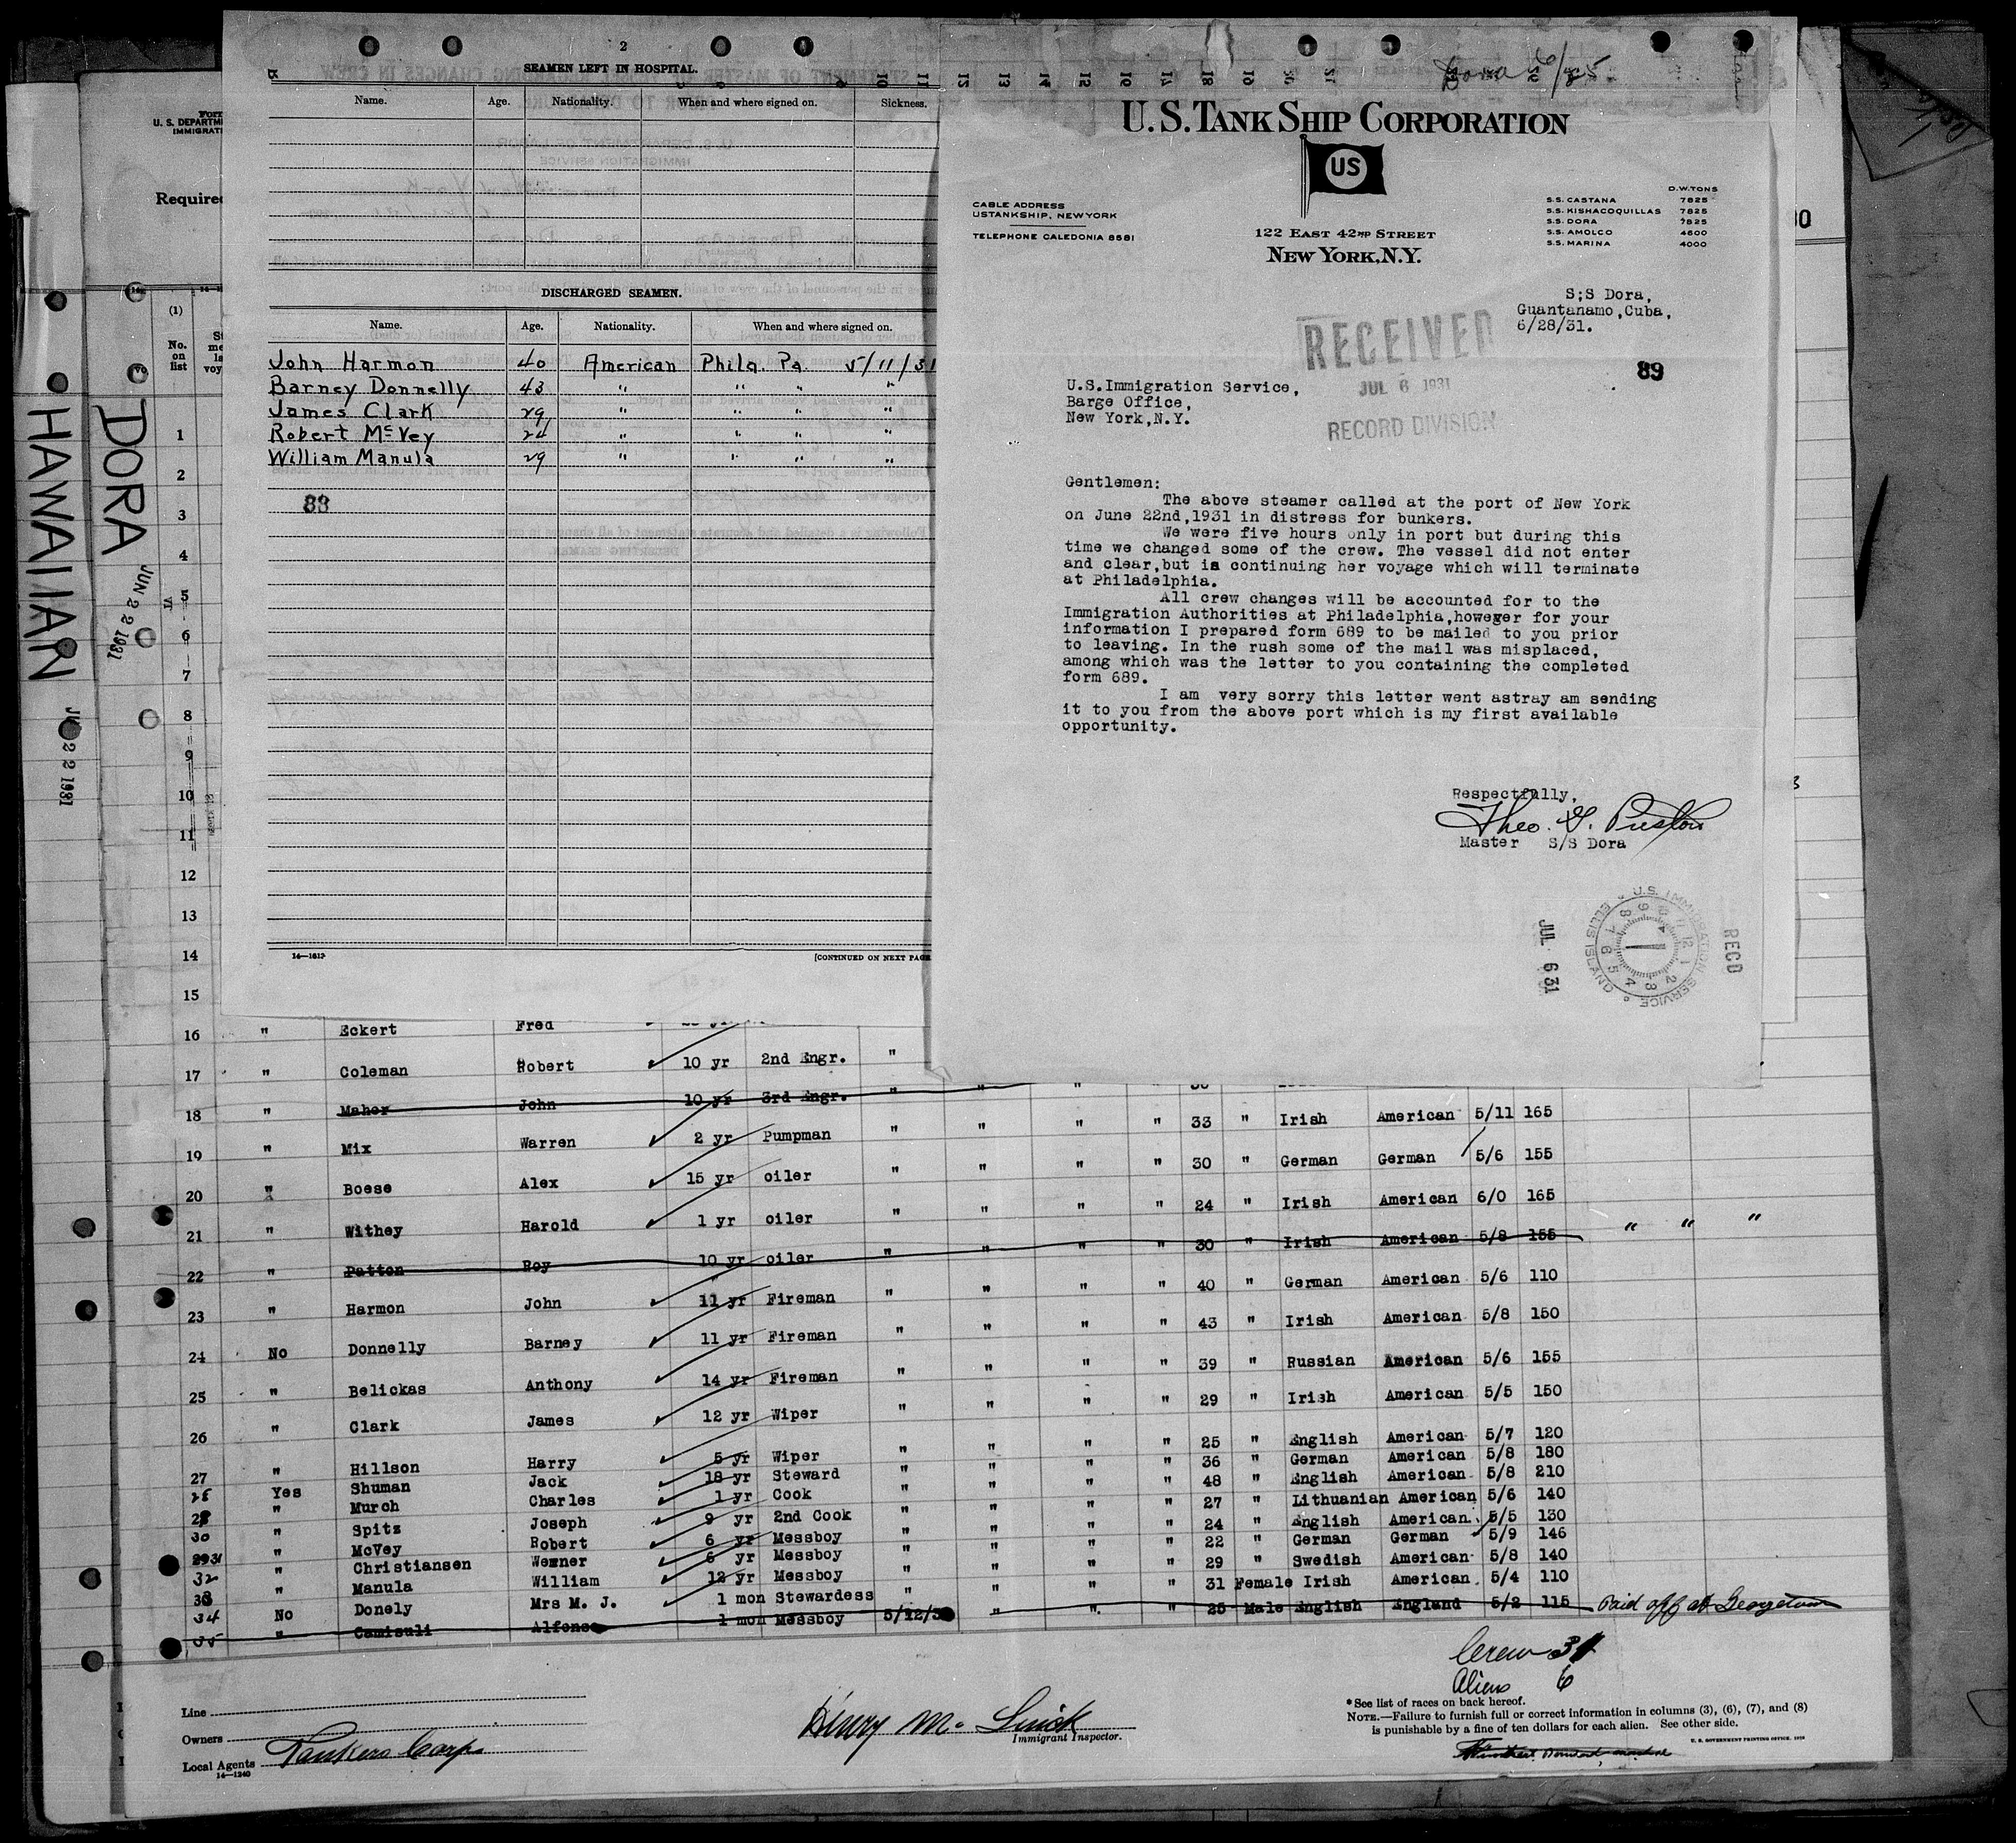 2
SEAMEN LEFT IN HOSPITAL.
Name. Age. Nationality. When and where signed on. Sickness.
DISCHARGED SEAMEN.
Name. Age. Nationality. When and where signed on.
John Harmon 40 American Phila. Pa. 5/11/31
Barney Donnelly 43 " " " "
James Clark 29 " " " "
Robert McVey 24 " " " "
William Manula 29 " " " "
88
[CONTINUED ON NEXT PAGE
Dora 6/25
U.S. TANK SHIP CORPORATION
US
CABLE ADDRESS
USTANKSHIP, NEWYORK
TELEPHONE CALEDONIA 8581
122 EAST 42ND STREET
NEW YORK, N.Y.
D.W.TONS
S.S. CASTANA 7825
S.S. KISHACOQUILLAS 7825
S.S. DORA 7825
S.S. AMOLCO 4600
S.S. MARINA 4000
S;S Dora,
Guantanamo,Cuba,
6/28/31.
RECEIVED
JUL 6 1931
RECORD DIVISION
89
U.S.Immigration Service,
Barge Office,
New York,N.Y.
Gentlemen:
The above steamer called at the port of New York
on June 22nd,1931 in distress for bunkers.
We were five hours only in port but during this
time we changed some of the crew. The vessel did not enter
and clear,but is continuing her voyage which will terminate
at Philadelphia.
All crew changes will be accounted for to the
Immigration Authorities at Philadelphia,however for your
information I prepared form 689 to be mailed to you prior
to leaving. In the rush some of the mail was misplaced,
among which was the letter to you containing the completed
form 689.
I am very sorry this letter went astray am sending
it to you from the above port which is my first available
opportunity.
Respectfully,
Theo. G. Preston
Master S/S Dora
U.S. IMMIGRATION SERVICE ELLIS ISLAND
RECD
JUL 6 31
HAWAIIAN
22 1931
DORA
JUN 22 1931
U. S. DEPARTM
IMMIGRAT
Required
(1)
No.
on
list
1
2
3
4
5
6
7
8
9
10
11
12
13
14
15
16 " Eckert Fred
17 " Coleman Robert 10 yr 2nd Engr. "
18 " Maher John 10 yr 3rd Engr. " " " "
19 " Mix Warren 2 yr Pumpman " " " " 33 " Irish American 5/11 165
20 " Boese Alex 15 yr oiler " " " " 30 " German German 5/6 155
21 " Withey Harold 1 yr oiler " " " " 24 " Irish American 6/0 165
22 " Patton Roy 10 yr oiler " " " " 30 " Irish American 5/8 155 " " "
23 " Harmon John 11 yr Fireman " " " " 40 " German American 5/6 110
24 No Donnelly Barney 11 yr Fireman " " " " 43 " Irish American 5/8 150
25 " Belickas Anthony 14 yr Fireman " " " " 39 " Russian American 5/6 155
26 " Clark James 12 yr Wiper " " " " 29 " Irish American 5/5 150
27 " Hillson Harry 5 yr Wiper " " " " 25 " English American 5/7 120
28 Yes Shuman Jack 18 yr Steward " " " " 36 " German American 5/8 180
29 " Murch Charles 1 yr Cook " " " " 48 " English American 5/8 210
30 " Spitz Joseph 9 yr 2nd Cook " " " " 27 " Lithuanian American 5/6 140
31 " McVey Robert 6 yr Messboy " " " " 24 " English American 5/5 130
32 " Christiansen Werner 6 yr Messboy " " " " 22 " German German 5/9 146
33 " Manula William 12 yr Messboy " " " " 29 " Swedish American 5/8 140
34 No Donely Mrs M. J. 1 mon Stewardess " " " " 31 Female Irish American 5/4 110
35 " Camisuli Alfonso 1 mon Messboy 5/12/3 " " " 25 Male English England 5/2 115 Paid off at Georgetown
Crew 31
Aliens 6
Line
Owners
Local Agents Tankers Corp
14—1240
Immigrant Inspector.
* See list of races on back hereof.
NOTE.—Failure to furnish full or correct information in columns (3), (6), (7), and (8)
is punishable by a fine of ten dollars for each alien. See other side.
U. S. GOVERNMENT PRINTING OFFICE